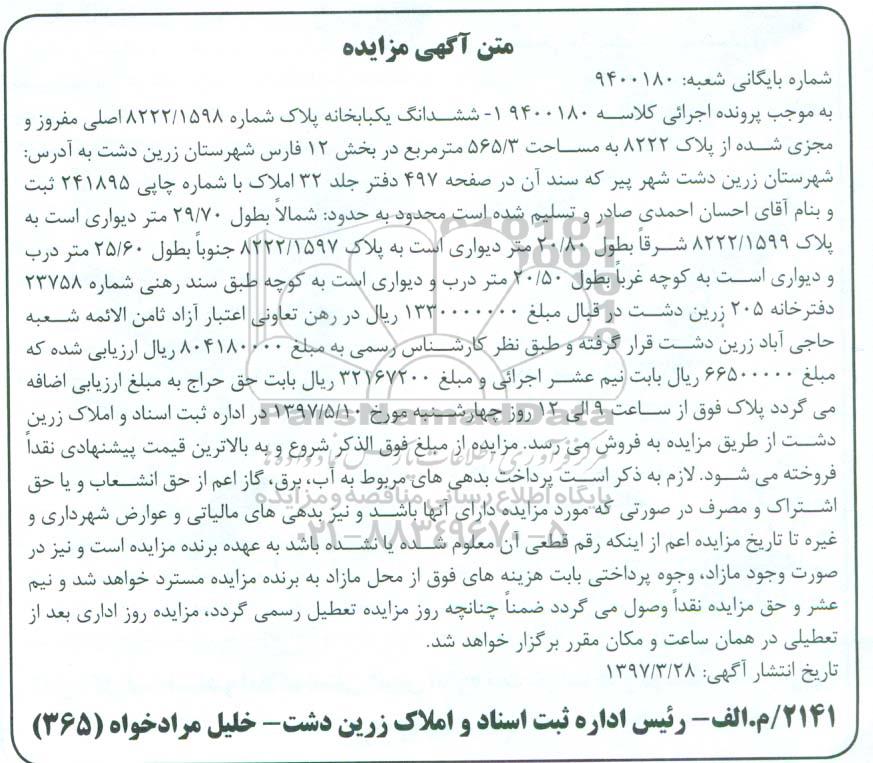 متن آگهی مزایده
شماره بایگانی شعبه: ۹۴۰۰۱۸۰
به موجب پرونده اجرائی کلاسه ۹۴۰۰۱۸۰ ۱- ششدانگ یکبابخانه پلاک شماره ۸۲۲۲/۱۵۹۸ اصلی مفروز و
مجزی شده از پلاک ۸۲۲۲ به مساحت ۵۶۵/۳ مترمربع در بخش ۱۲ فارس شهرستان زرین دشت به آدرس:
شهرستان زرین دشت شهر پیر که سند آن در صفحه ۴۹۷ دفتر جلد ۳۲ املاک با شماره چاپی ۲۴۱۸۹۵ ثبت
و بنام آقای احسان احمدی صادر و تسلیم شده است محدود به حدود: شمالاً بطول ۲۹/۷۰ متر دیواری است به
پلاک ۸۲۲۲/۱۵۹۹ شرقاً بطول ۲۰/۸۰ متر دیواری است به پلاک ۸۲۲۲/۱۵۹۷ جنوباً بطول ۲۵/۶۰ متر درب
و دیواری است به کوچه غرباً بطول ۲۰/۵۰ متر درب و دیواری است به کوچه طبق سند رهنی شماره ۲۳۷۵۸
دفترخانه ۲۰۵ زرین دشت در قبال مبلغ ۱۳۳۰۰۰۰۰۰۰ ریال در رهن تعاونی اعتبار آزاد ثامن الائمه شعبه
حاجی آباد زرین دشت قرار گرفته و طبق نظر کارشناس رسمی به مبلغ ۸۰۴۱۸۰۰۰۰ ریال ارزیابی شده که
مبلغ ۶۶۵۰۰۰۰۰ ریال بابت نیم عشر اجرائی و مبلغ ۳۲۱۶۷۲۰۰ ریال بابت حق حراج به مبلغ ارزیابی اضافه
می گردد پلاک فوق از ساعت ۹ الی ۱۲ روز چهارشنبه مورخ ۱۳۹۷/۵/۱۰ در اداره ثبت اسناد و املاک زرین
دشت از طریق مزایده به فروش می رسد. مزایده از مبلغ فوق الذکر شروع و به بالاترین قیمت پیشنهادی نقداً
فروخته می شود. لازم به ذکر است پرداخت بدهی های مربوط به آب، برق، گاز اعم از حق انشعاب و یا حق
اشتراک و مصرف در صورتی که مورد مزایده دارای آنها باشد و نیز بدهی های مالیاتی و عوارض شهرداری و
غیره تا تاریخ مزایده اعم از اینکه رقم قطعی آن معلوم شده یا نشده باشد به عهده برنده مزایده است و نیز در
صورت وجود مازاد، وجوه پرداختی بابت هزینه های فوق از محل مازاد به برنده مزایده مسترد خواهد شد و نیم
عشر و حق مزایده نقداً وصول می گردد ضمناً چنانچه روز مزایده تعطیل رسمی گردد، مزایده روز اداری بعد از
تعطیلی در همان ساعت و مکان مقرر برگزار خواهد شد.
تاریخ انتشار آگهی: ۱۳۹۷/۳/۲۸
۲۱۴۱/م.الف- رئیس اداره ثبت اسناد و املاک زرین دشت- خلیل مرادخواه (۳۶۵)
ParsNamadData
پایگاه اطلاع رسانی مناقصه و مزایده
۰۲۱-۸۸۳۴۹۶۷۰-۵